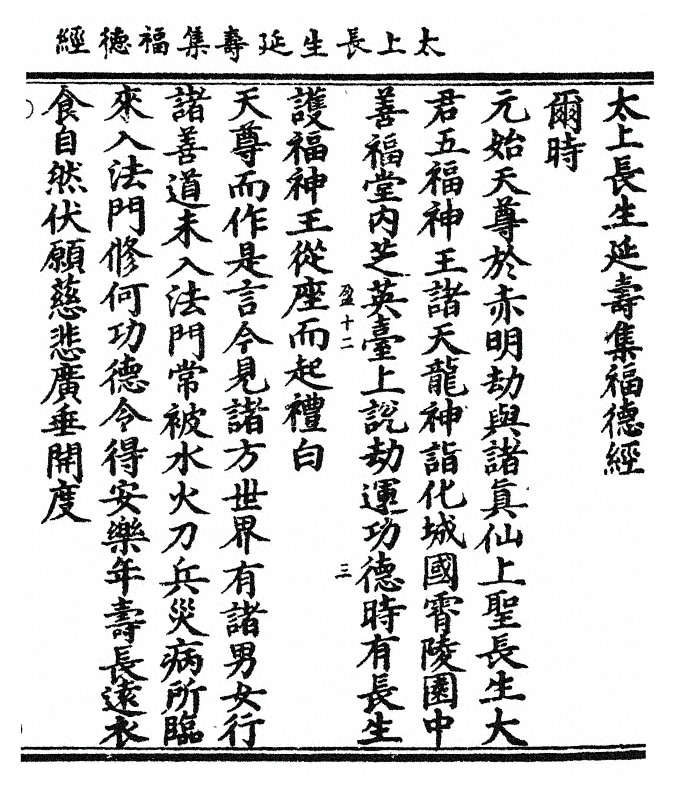 太上長生延壽集福德經
太上長生延壽集福德經
爾時
元始天尊於赤明劫與諸真仙上聖長生大
君五福神王諸天龍神詣化城國霄陵園中
善福堂內芝英臺上說劫運功德時有長生
盈十二
三
護福神王從座而起禮白
天尊而作是言今見諸方世界有諸男女行
諸善道未入法門常被水火刀兵災病所臨
來入法門修何功德令得安樂年壽長遠衣
食自然伏願慈悲廣垂開度